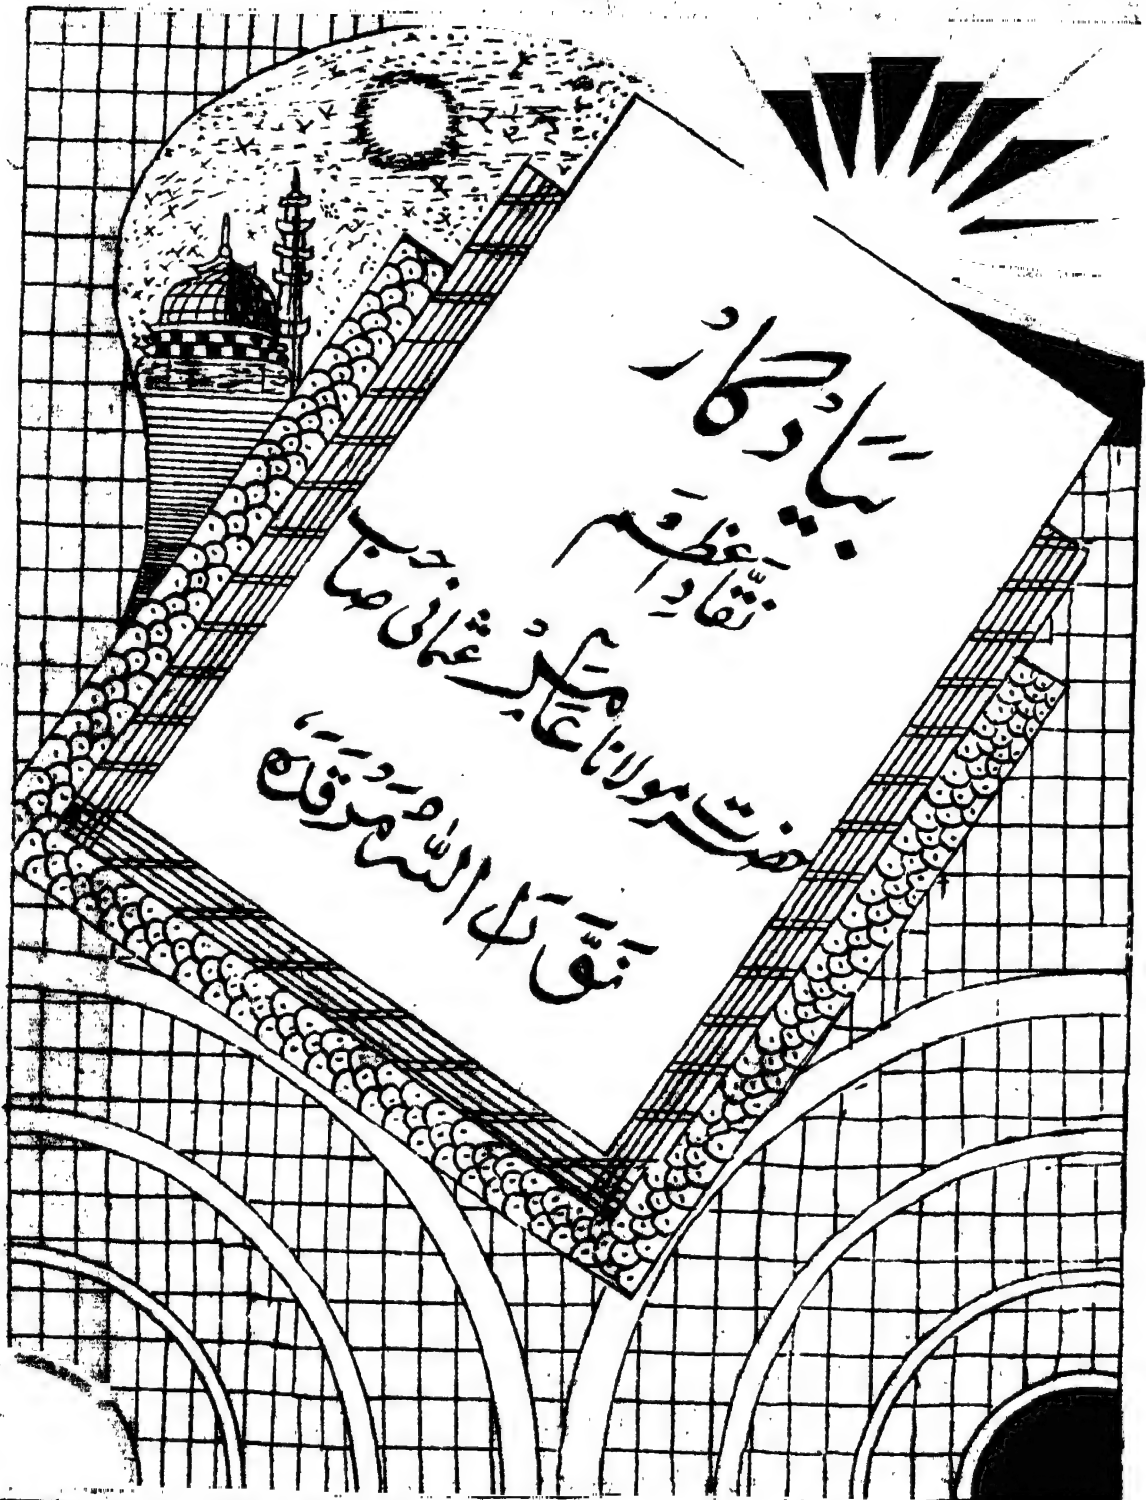 بَیَادگار
نقّادِ اعظم
حضرت مولانا عامر عثمانی صاحب
نَوَّرَ اللّٰہُ مَرْقَدَہٗ